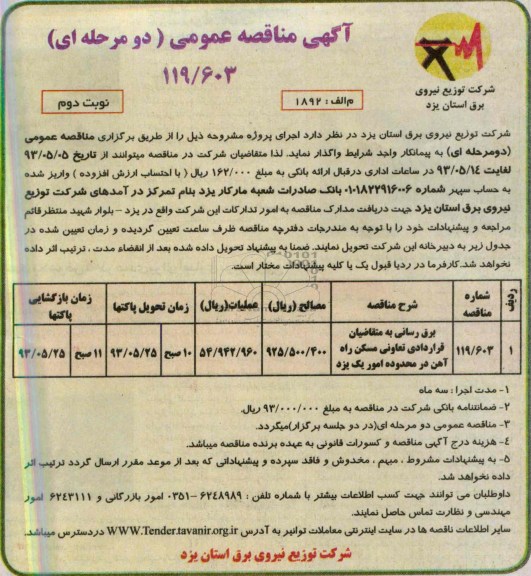 آگهی مناقصه عمومی ( دو مرحله ای)
۱۱۹/۶۰۳
شرکت توزیع نیروی
برق استان یزد
م الف: ۱۸۹۲
نوبت دوم
شرکت توزیع نیروی برق استان یزد در نظر دارد اجرای پروژه مشروحه ذیل را از طریق برگزاری مناقصه عمومی
(دومرحله ای) به پیمانکار واجد شرایط واگذار نماید. لذا متقاضیان شرکت در مناقصه میتوانند از تاریخ ۹۳/۰۵/۰۵
لغایت ۹۳/۰۵/۱۴ در ساعات اداری درقبال ارائه بانکی به مبلغ ۱۶۲/۰۰۰ ریال ( با احتساب ارزش افزوده ) واریز شده
به حساب سپهر شماره ۰۱۰۱۸۲۲۹۱۶۰۰۶ بانک صادرات شعبه مارکار یزد بنام تمرکز در آمدهای شرکت توزیع
نیروی برق استان یزد جهت دریافت مدارک مناقصه به امور تدارکات این شرکت واقع در یزد – بلوار شهید منتظرقائم
مراجعه و پیشنهادات خود را با توجه به مندرجات دفترچه مناقصه ظرف ساعت تعیین گردیده و زمان تعیین شده در
جدول زیر به دبیرخانه این شرکت تحویل نمایند. ضمنا به پیشنهاد تحویل داده شده بعد از انقضاء مدت ، ترتیب اثر داده
نخواهد شد.کارفرما در ردیا قبول یک یا کلیه پیشنهادات مختار است.
ردیف شماره مناقصه شرح مناقصه مصالح (ریال) عملیات(ریال) زمان تحویل پاکتها زمان بازگشایی پاکتها
۱ ۱۱۹/۶۰۳ برق رسانی به متقاضیان قراردادی تعاونی مسکن راه آهن در محدوده امور یک یزد ۹۲۵/۵۰۰/۴۰۰ ۵۴/۹۴۲/۹۶۰ ۱۰ صبح ۹۳/۰۵/۲۵ ۱۱ صبح ۹۳/۰۵/۲۵
۱- مدت اجرا : سه ماه
۲- ضمانتنامه بانکی شرکت در مناقصه به مبلغ ۹۳/۰۰۰/۰۰۰ ریال.
۳- مناقصه عمومی دو مرحله ای(در دو جلسه برگزار)میگردد.
۴- هزینه درج آگهی مناقصه و کسورات قانونی به عهده برنده مناقصه میباشد.
۵- به پیشنهادات مشروط ، مبهم ، مخدوش و فاقد سپرده و پیشنهاداتی که بعد از موعد مقرر ارسال گردد ترتیب اثر
داده نخواهد شد.
داوطلبان می توانند جهت کسب اطلاعات بیشتر با شماره تلفن : ۶۲۴۸۹۸۹ –۰۳۵۱ امور بازرگانی و ۶۲۴۳۱۱۱ امور
مهندسی و نظارت تماس حاصل نمایند.
سایر اطلاعات ناقصه ها در سایت اینترنتی معاملات توانیر به آدرس WWW.Tender.tavanir.org.ir دردسترس میباشد.
شرکت توزیع نیروی برق استان یزد